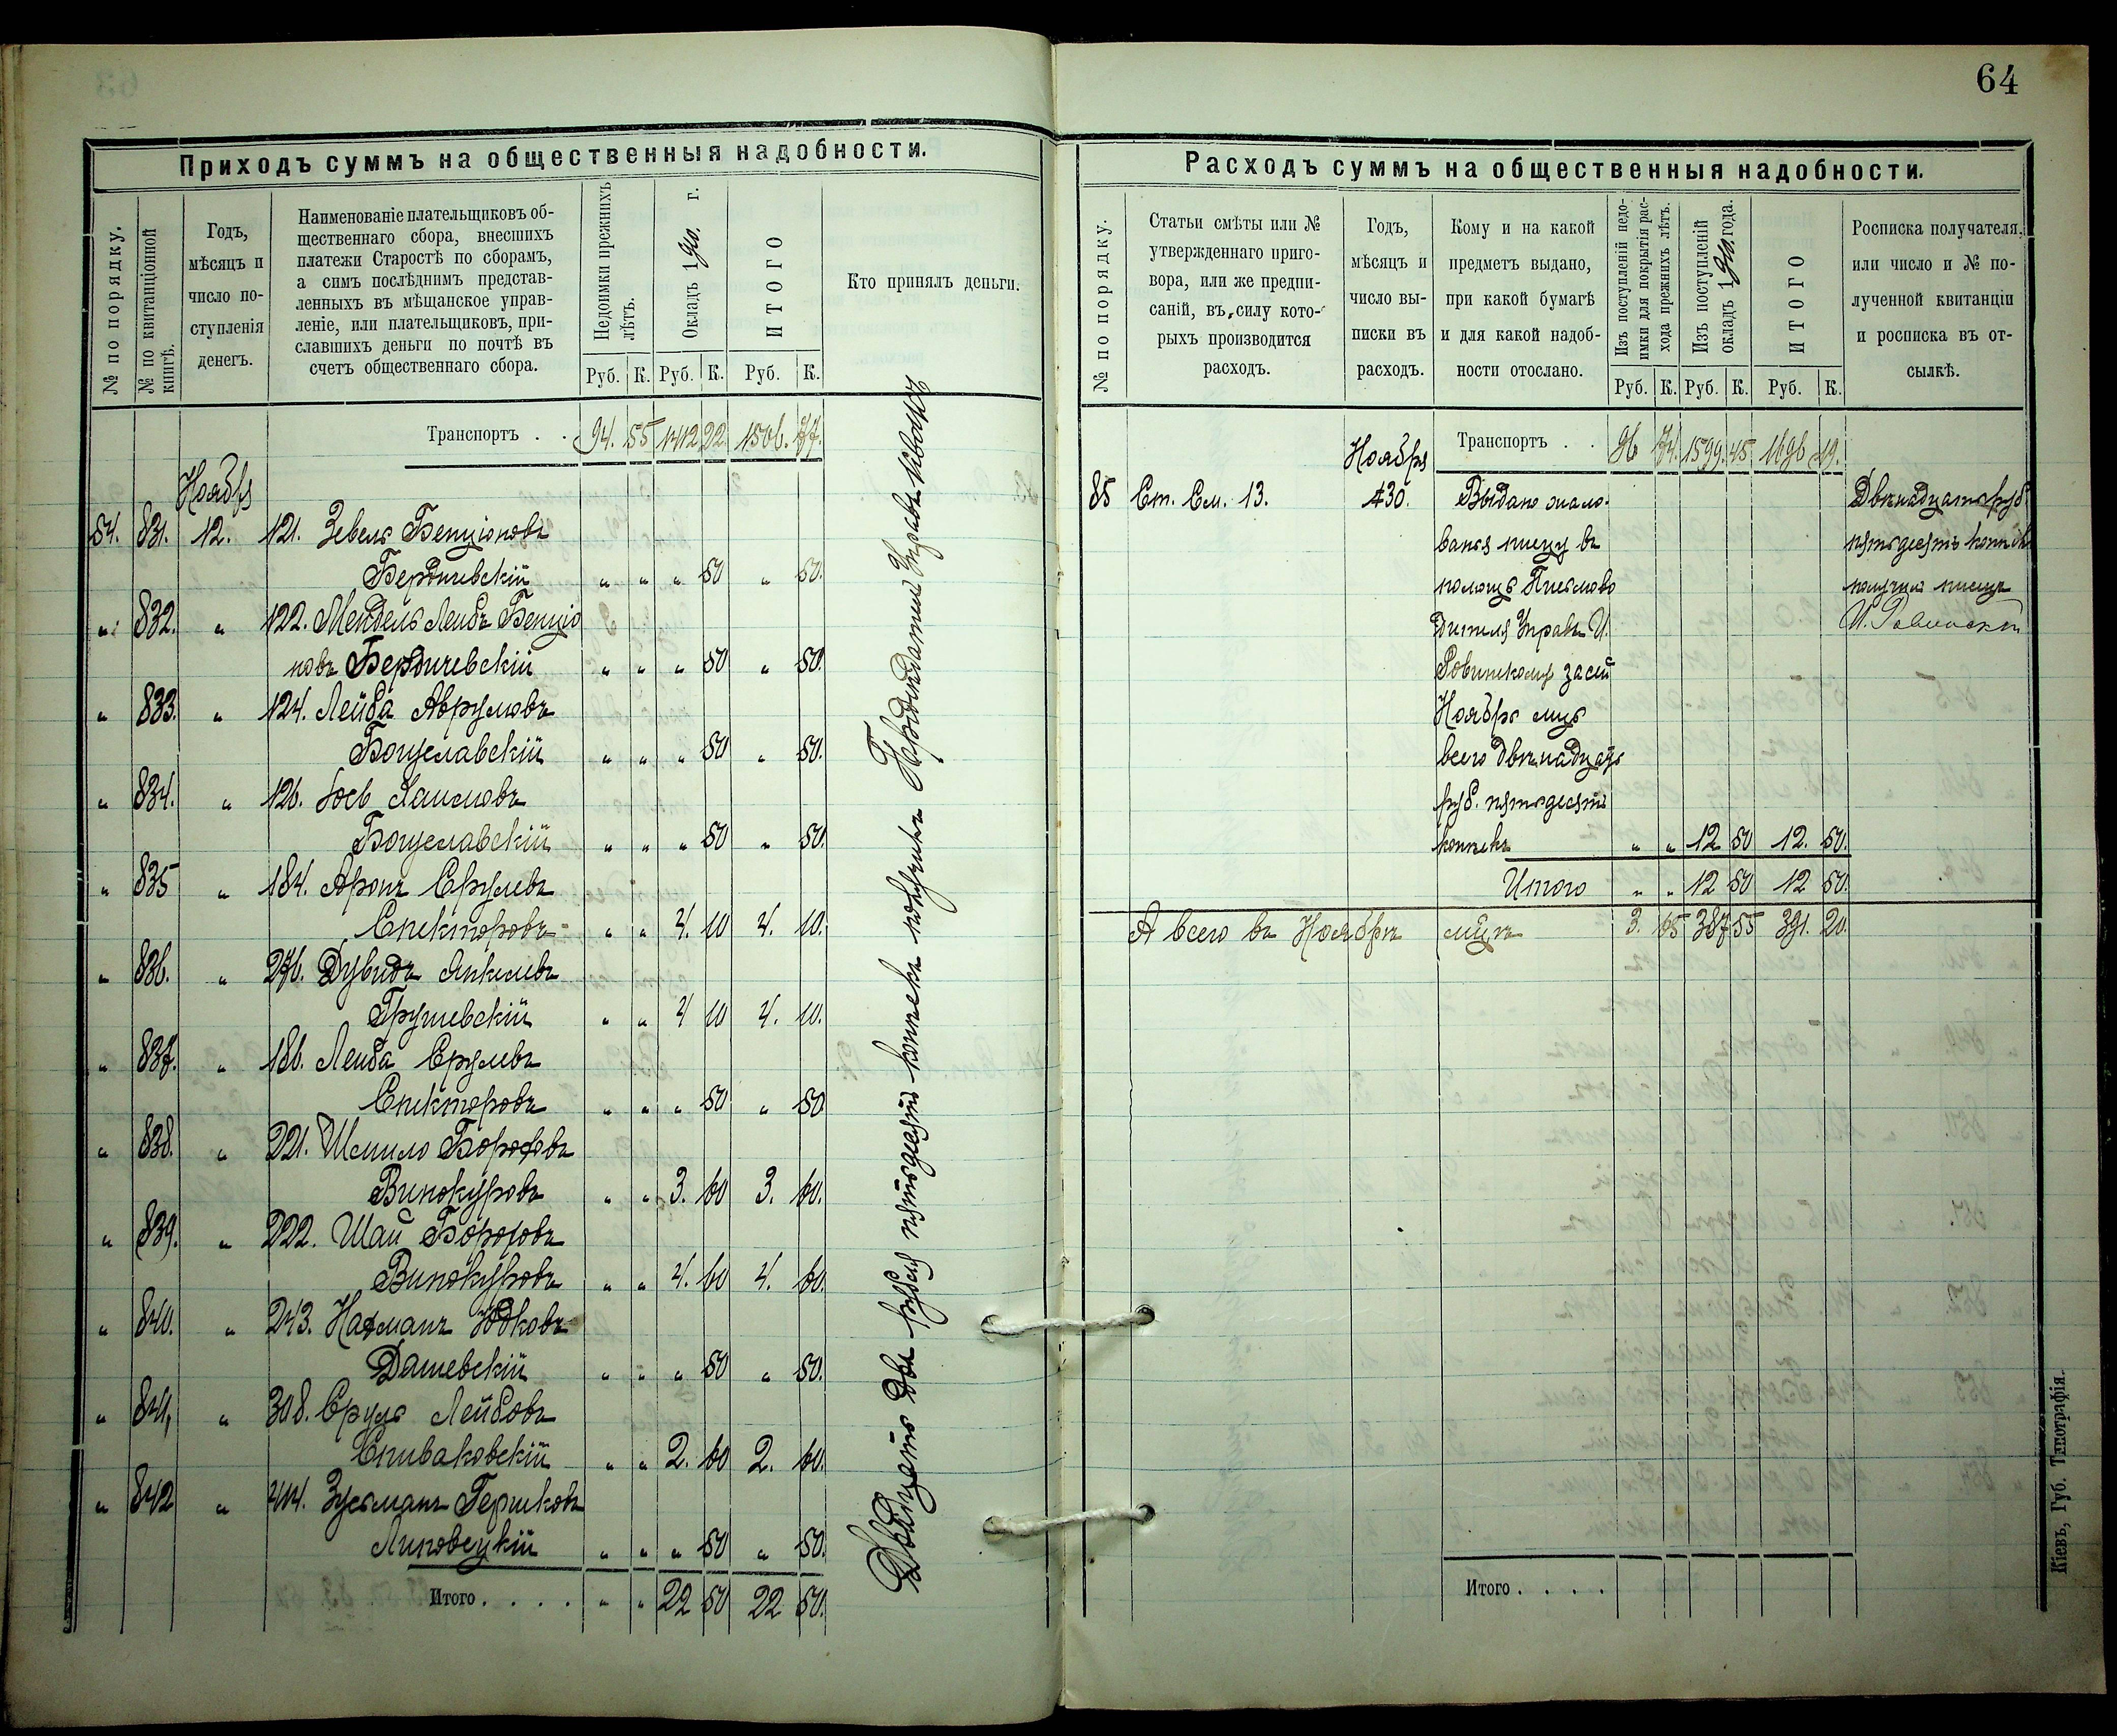 64
Приходъ суммъ на общественныя надобности.
№ по порядку.
№ по квитанціонной
книгѣ.
Годъ,
мѣсяцъ и
число по-
ступленія
денегъ.
Наименованіе плательщиковъ об-
щественнаго сбора, внесшихъ
платежи Старостѣ по сборамъ,
а симъ послѣднимъ представ-
ленныхъ въ мѣщанское управ-
леніе, или плательщиковъ, при-
славшихъ деньги по почтѣ въ
счетъ общественнаго сбора.
Недоимки прежнихъ
лѣтъ.
Окладъ 1910. г.
ИТОГО
Кто принялъ деньги.
Руб. К. Руб. К. Руб. К.
Транспортъ . . 94. 55 1412 22. 1506. 77.
Ноября
84. 831. 12. 121. Зевель Бенціоновъ
Бердичевскій „ „ „ 50 „ 50.
„ 832. „ 122. Мендель Лейбъ Бенціо
новъ Бердичевскій „ „ „ 50 „ 50.
„ 833. „ 124. Лейба Аврумовъ
Богуславскій „ „ „ 50 „ 50.
„ 834. „ 126. Іось Хаимовъ
Богуславскій „ „ „ 50 „ 50.
„ 835 „ 184. Аронъ Срулевъ
Спекторовъ „ „ 4. 10 4. 10.
„ 836. „ 276. Дувидъ Янкелевъ
Грушевскій „ „ 4 10 4. 10.
„ 837. „ 186. Лейба Срулевъ
Спекторовъ „ „ „ 50 „ 50
„ 838. „ 221. Шмило Бороховъ
Винокуровъ „ „ 3. 60 3. 60.
„ 839. „ 222. Шай Бороховъ
Винокуровъ „ „ 4. 60 4. 60.
„ 840. „ 243. Нахманъ Юдковъ
Дашевскій „ „ „ 50 „ 50.
„ 841, „ 308. Сруль Лейбовъ
Спиваковскій „ „ 2. 60 2. 60.
„ 842 „ 414. Зусьманъ Гершковъ
Липовецкій „ „ „ 50 „ 50.
Итого . . . . „ „ 22 50 22 50.
Двадцать два рубля пятьдесятъ копѣекъ получилъ
Расходъ суммъ на общественныя надобности.
№ по порядку.
Статьи смѣты или №
утвержденнаго приго-
вора, или же предпи-
саній, въ силу кото-
рыхъ производится
расходъ.
Годъ,
мѣсяцъ и
число вы-
писки въ
расходъ.
Кому и на какой
предметъ выдано,
при какой бумагѣ
и для какой надоб-
ности отослано.
Изъ поступленій недо-
имки для покрытія рас-
хода прежнихъ лѣтъ.
Изъ поступленій
окладъ 1910. года.
ИТОГО
Росписка получателя,
или число и № по-
лученной квитанціи
и росписка въ от-
сылкѣ.
Руб. К. Руб. К. Руб. К.
Транспортъ . . 96 74. 1599. 45 1696 19.
Ноября
85 Ст. См. 13. 30. Выдано жало- Двѣнадцать руб
ванья писцу въ пятьдесятъ копѣекъ
помощь Письмово получилъ писецъ
дителя Управы И.
Ровинскому за сей
Ноябрь мцъ
всего двѣнадцать
руб. пятьдесятъ
копѣекъ „ „ 12 50 12. 50.
Итого „ „ 12 50 12 50.
А всего въ Ноябрѣ мцѣ 3. 65 387 55 391. 20.
Итого . . . .
Кіевъ, Губ. Типографія.